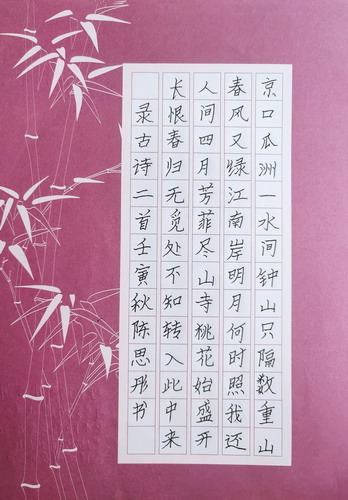 京口瓜洲一水间钟山只隔数重山
春风又绿江南岸明月何时照我还
人间四月芳菲尽山寺桃花始盛开
长恨春归无觅处不知转入此中来
录古诗二首壬寅秋陈思彤书